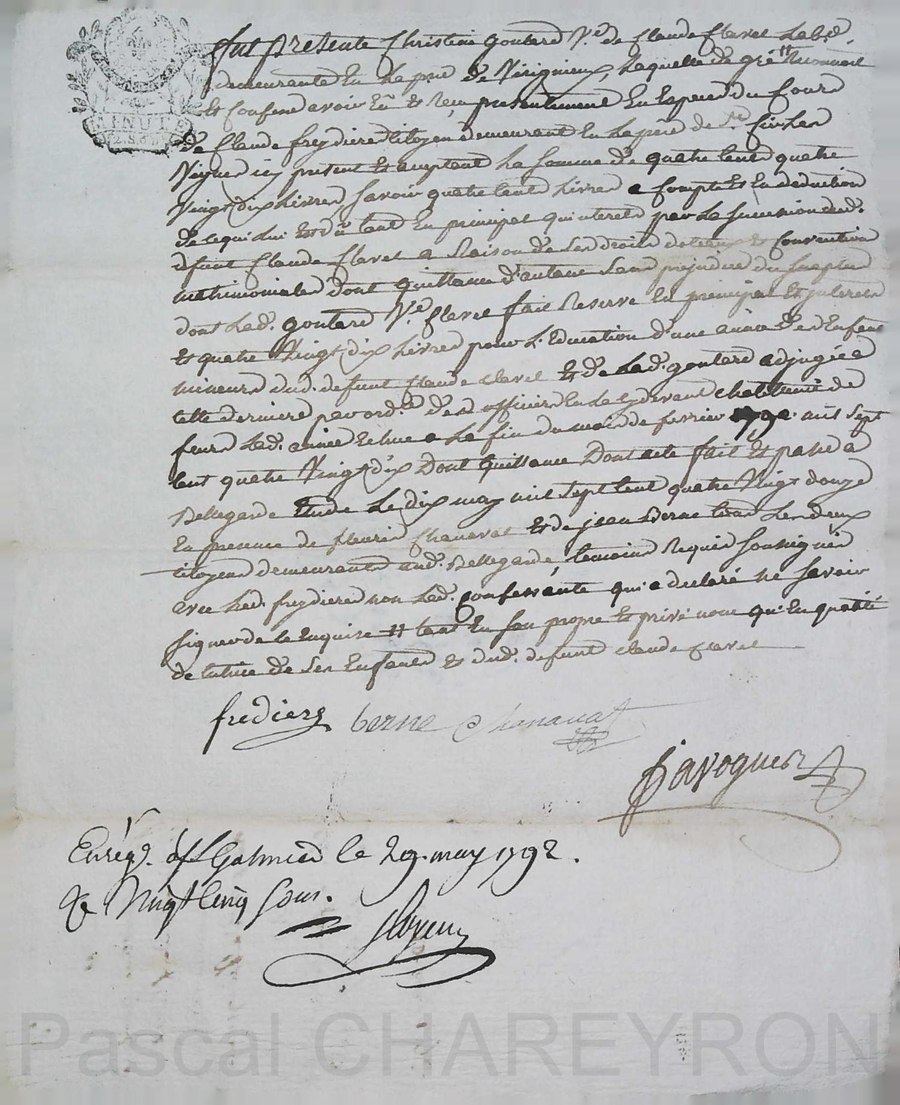 MINUT
2. S. 6 D.
fut presente Christine goutard V.e de Claude Clavel Lab.r
demeurante En la p.sse de Virignieux, laquelle de gré reconnoit
Et confesse avoir Eu et Reçu presentement En Especes du Cours
de Claude freydiere Citoyen demeurant En la p.sse de S.t
present Et acceptant La somme de quatre Cent quatre
Vingt dix Livres savoir quatre Cent Livres a Compte Et En deduction
de ce qui lui Est dû tant En principal qu'interets par La succession dud.
defunt Claude Clavel a Raison de Ses droits dotaux et Convention
matrimoniales dont quittance d'autant Sans prejudice du Surplus
dont Lad. goutard V.e Clavel fait Reserve En principal Et interets
Et quatre Vingt dix Livres pour L'Education d'une année des Enfans
mineurs dud. defunt Claude Clavel Et de Lad. goutard adjugée a
cette derniere par ord.ce des officiers En La cydevant chatellenie de
feurs Lad. année Echue a La fin du mois de fevrier 1792. mil sept
Cent quatre Vingt dix Dont quittance Dont acte fait Et passé a
Bellegarde Etude Le dix may mil sept Cent quatre Vingt douze
En presence de fleury Chanavat Et de jean Berne tous Les deux
Citoyens demeurants aud. Bellegarde, temoins Requis Soussignés
avec Led. freydiere non Lad. Confessante qui a declaré ne Savoir
signer de ce Enquise tant En son propre Et privé nom qu'En qualité
de tutrice de Ses Enfants Et dud. defunt Claude Clavel
frediere berne Chanavat
Javogues
Enreg. à S.t Galmier le 29. may 1792.
Vingt Cinq Sous.
Pascal CHAREYRON